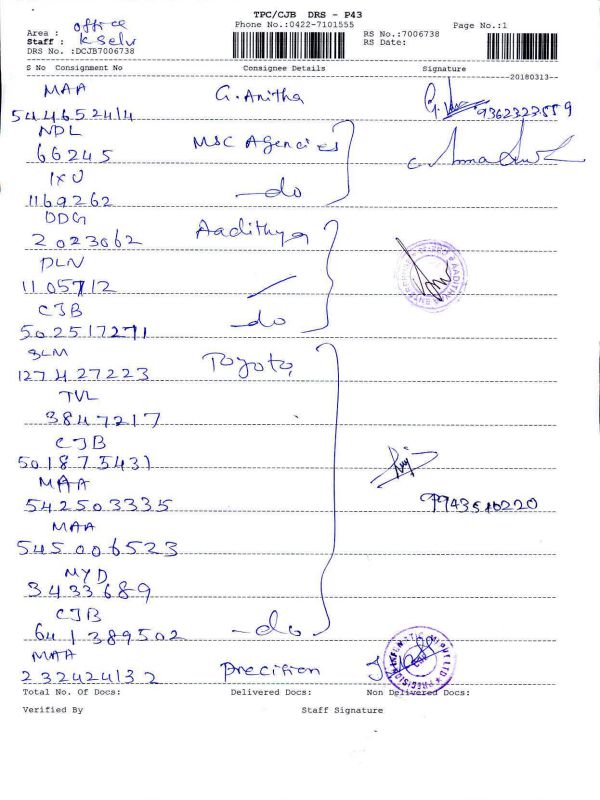 TPC/CJB DRS - P43
Phone No.:0422-7101555
Page No.:1
Area : office
Staff : K Selv
DRS No. :DCJB7006738
RS No.:7006738
RS Date:
S No Consignment No Consignee Details Signature
--20180313--
MAA
544652414 G. Anitha 9362323559
NDL
66245 MSC Agencies
IXU
1169262 -do
DDG
2023062 Aadithya
PLN
1105712
CJB
502517271 -do
SLM
127427223 Toyota
TVL
3847217
CJB
501875431
MAA
542503335 9943510220
MAA
545006523
MYD
3433689
CJB
641389502 -do
MAA
232424132 Precision
Total No. Of Docs: Delivered Docs: Non Delivered Docs:
Verified By Staff Signature